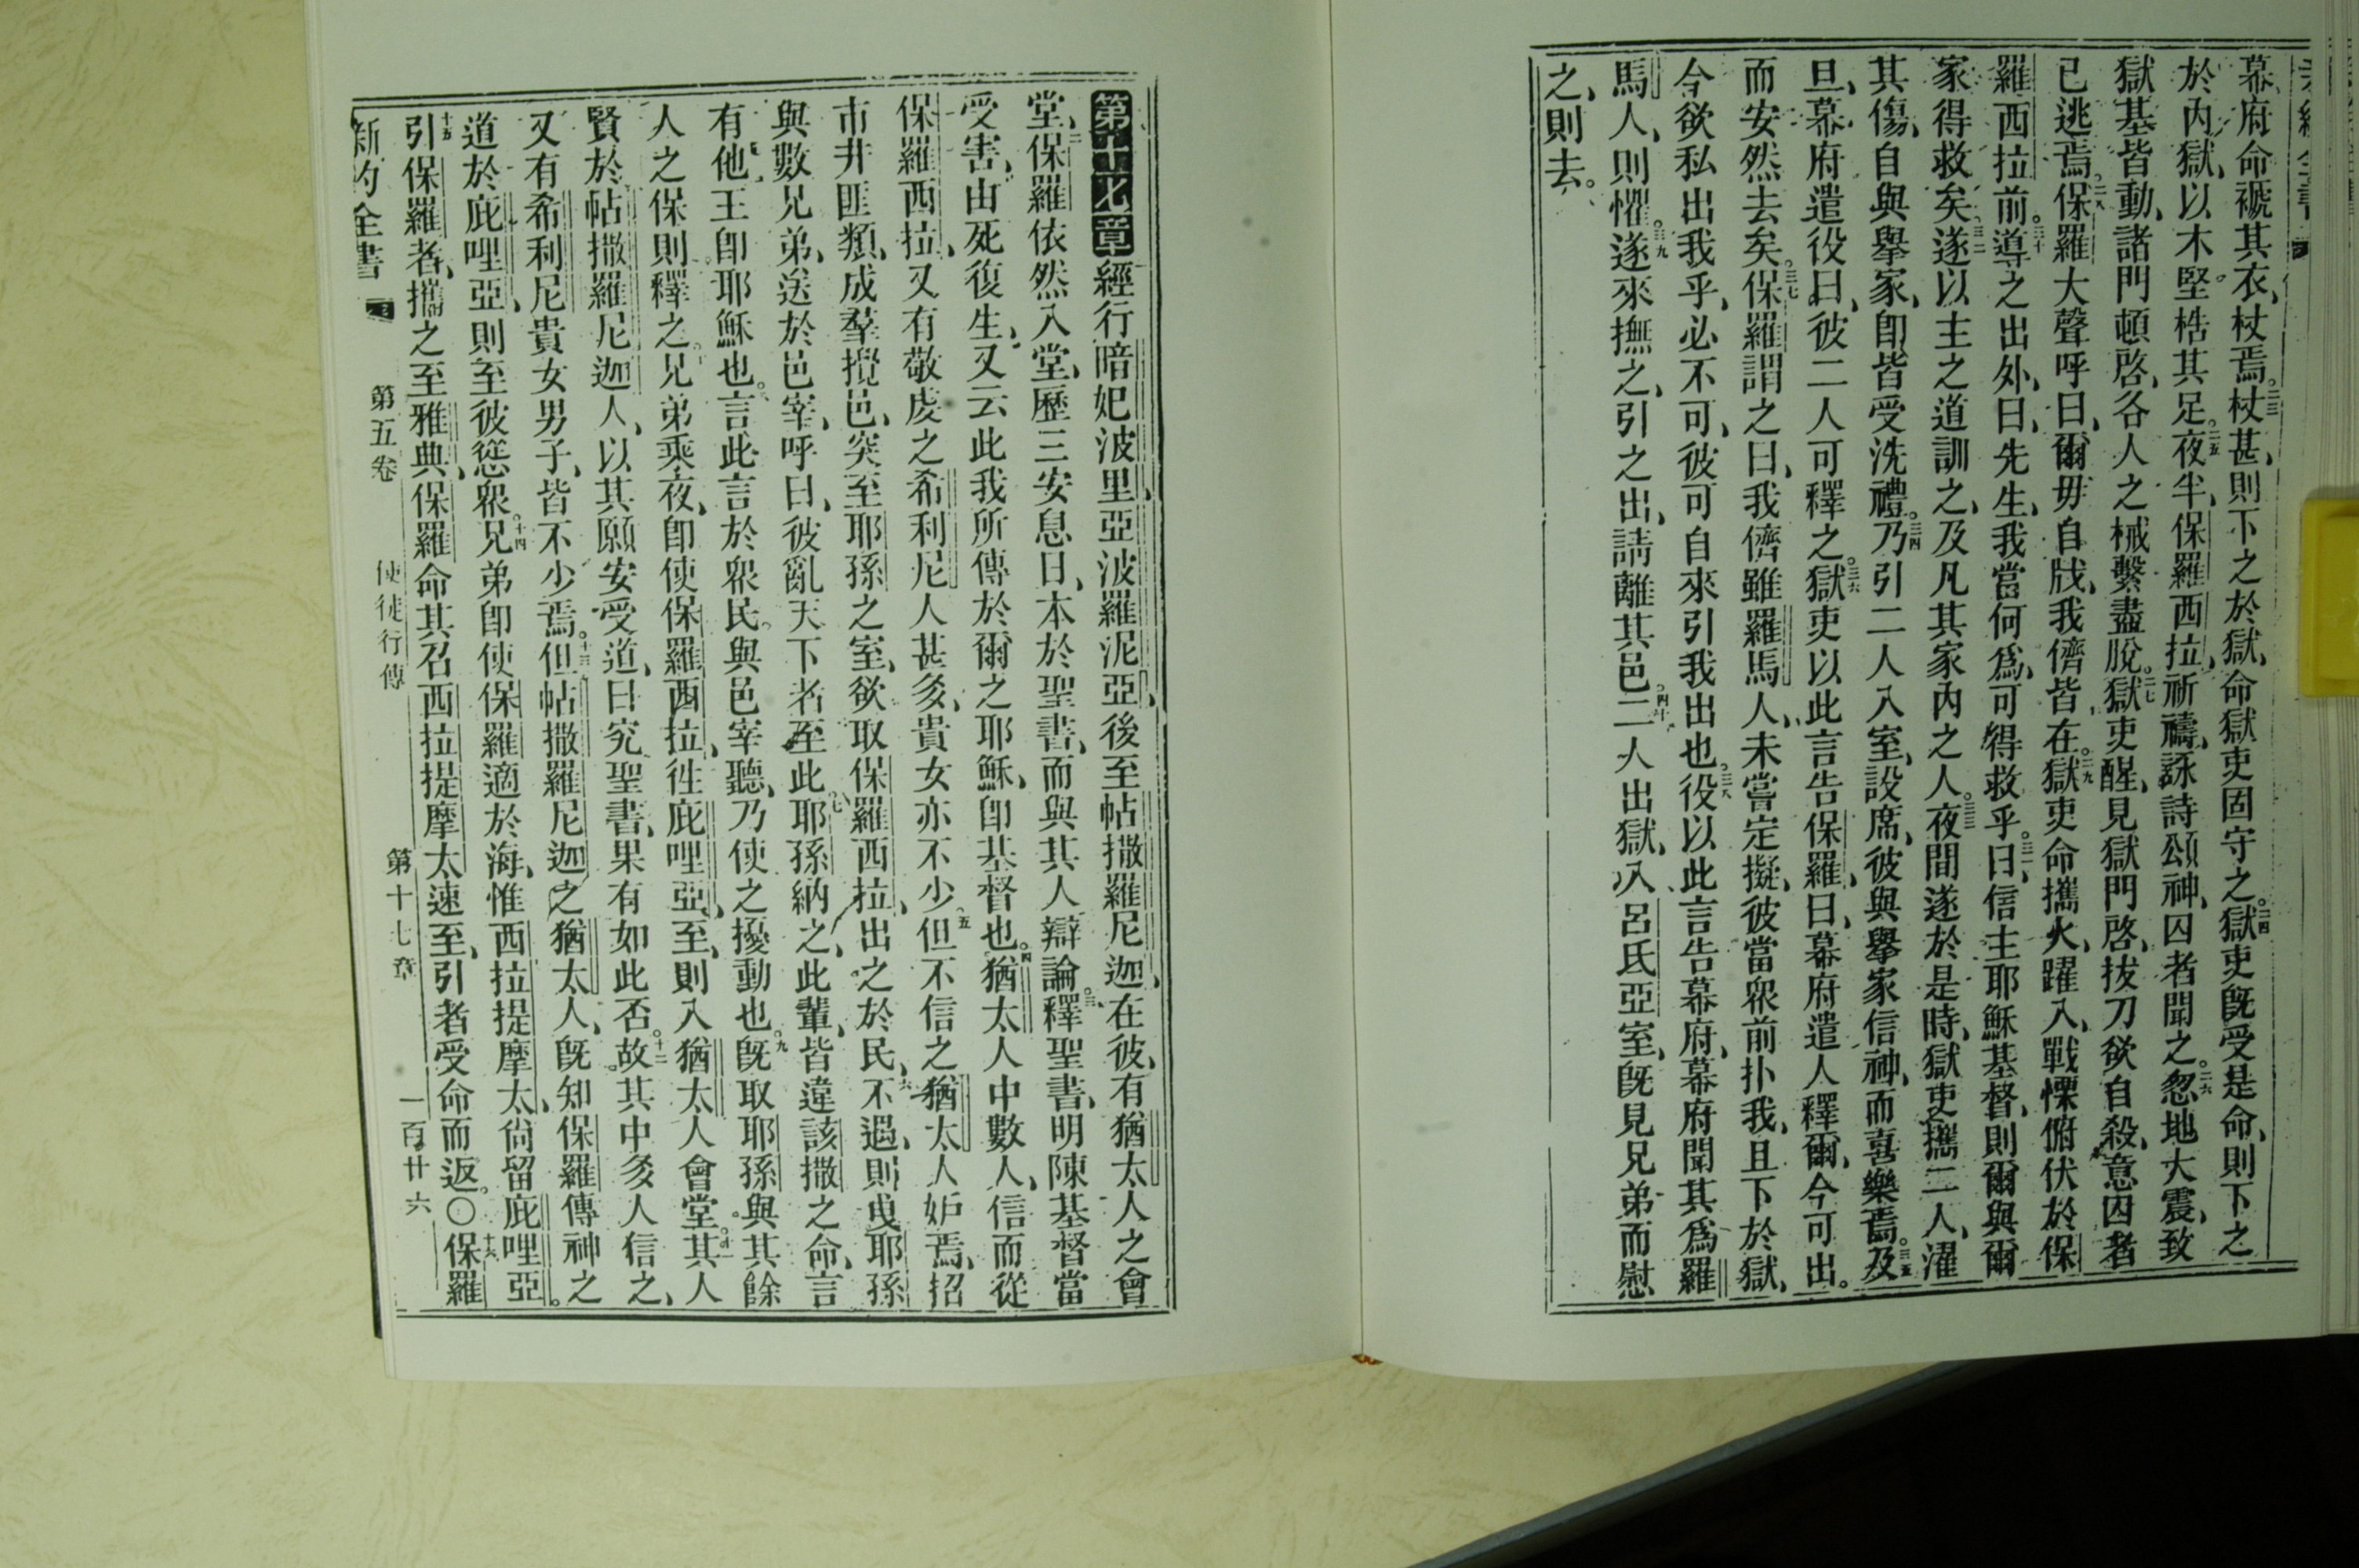 幕府命褫其衣、杖焉。二三杖甚、則下之於獄、命獄吏固守之。二四獄吏旣受是命、則下之
於內獄、以木堅梏其足。二五夜半、保羅西拉、祈禱、詠詩頌神、囚者聞之。二六忽地大震、致
獄基皆動、諸門頓啓、各人之械繫盡脫。二七獄吏醒、見獄門啓、拔刀欲自殺、意囚者
已逃焉。二八保羅大聲呼曰、爾毋自戕、我儕皆在。二九獄吏命攜火、躍入、戰慄俯伏於保
羅西拉前。三十導之出外、曰、先生、我當何爲、可得救乎。三一曰、信主耶穌基督、則爾與爾
家得救矣。三二遂以主之道訓之、及凡其家內之人。三三夜間遂於是時、獄吏攜二人、濯
其傷、自與舉家、卽皆受洗禮。三四乃引二人入室、設席、彼與舉家信神、而喜樂焉。三五及
旦、幕府遣役曰、彼二人可釋之。三六獄吏以此言告保羅、曰、幕府遣人釋爾、今可出。
而安然去矣。三七保羅謂之曰、我儕雖羅馬人、未嘗定擬、彼當眾前扑我、且下於獄、
今欲私出我乎、必不可、彼可自來引我出也。三八役以此言告幕府、幕府聞其爲羅
馬人、則懼。三九遂來撫之、引之出、請離其邑。四十二人出獄、入呂氏亞室、旣見兄弟而慰
之、則去。
第十七章經行暗妃波里、亞波羅泥亞、後至帖撒羅尼迦、在彼、有猶太人之會
堂、二保羅依然入堂、歷三安息日、本於聖書、而與其人辯論。三釋聖書、明陳基督當
受害、由死復生、又云此我所傳於爾之耶穌、卽基督也。四猶太人中數人、信而從
保羅西拉、又有敬虔之希利尼人甚多、貴女亦不少。五但不信之猶太人妒焉、招
市井匪類、成羣攪邑、突至耶孫之室、欲取保羅西拉、出之於民、六不遇、則曳耶孫
與數兄弟、送於邑宰、呼曰、彼亂天下者至此、七耶孫納之、此輩、皆違該撒之命、言
有他王、卽耶穌也。八言此言於眾民、與邑宰聽、乃使之擾動也。九旣取耶孫與其餘
人之保、則釋之。十兄弟乘夜、卽使保羅西拉、往庇哩亞、至、則入猶太人會堂。十一其人
賢於帖撒羅尼迦人、以其願安受道、日究聖書、果有如此否。十二故其中多人信之、
又有希利尼貴女男子、皆不少焉。十三但帖撒羅尼迦之猶太人、旣知保羅傳神之
道於庇哩亞、則至彼慫眾。十四兄弟卽使保羅適於海、惟西拉提摩太、尙留庇哩亞。
十五引保羅者、攜之至雅典、保羅命其召西拉提摩太速至、引者受命而返。〇十六保羅
新約全書 第五卷 使徒行傳 第十七章 一百廿六